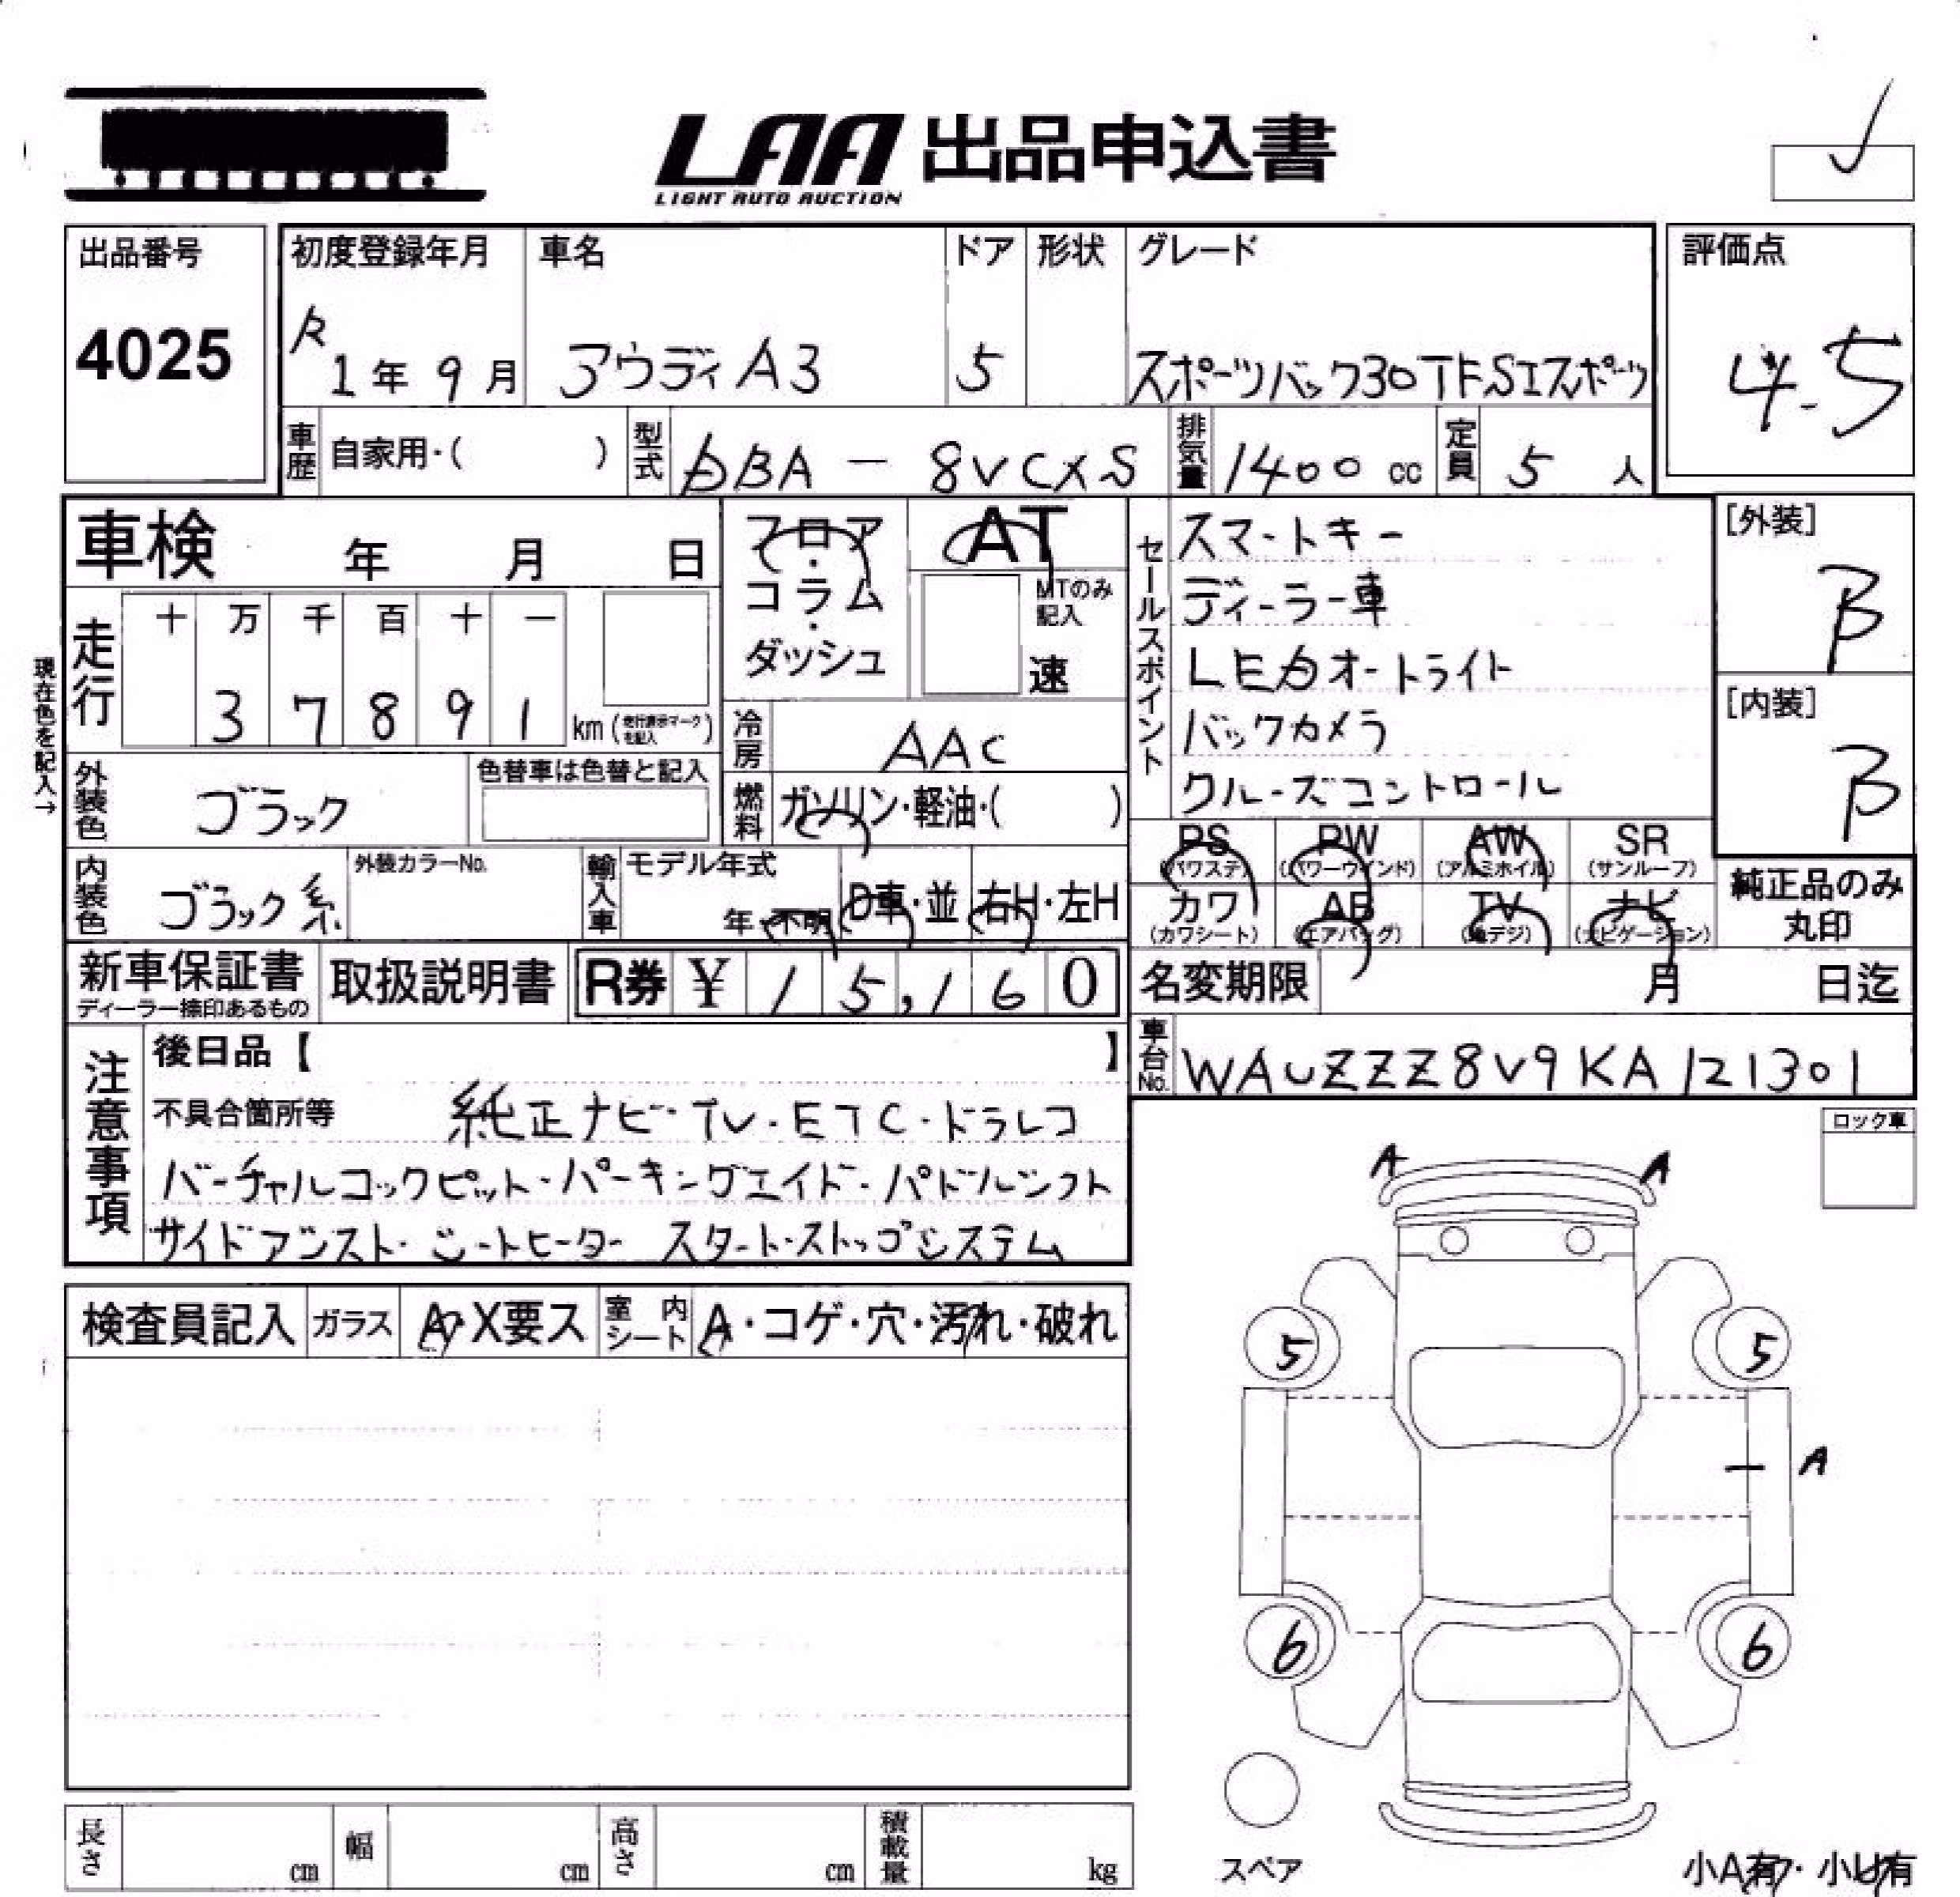 LAA 出品申込書
LIGHT AUTO AUCTION
出品番号
4025
初度登録年月
R 1年 9月
車名
アウディ A3
ドア
5
形状
グレード
スポーツバック30TFSIスポーツ
評価点
4.5
車歴 自家用・( )
型式 DBA - 8VCXS
排気量 1400 cc
定員 5 人
車検 年 月 日
フロア・コラム・ダッシュ
AT
MTのみ記入
速
セールスポイント
スマートキー
ディーラー車
LEDオートライト
バックカメラ
クルーズコントロール
[外装]
B
[内装]
B
現在色を記入→
走行
十 万 千 百 十 一
3 7 8 9 1 km (走行表示マークを記入)
冷房 AAC
外装色 ブラック
色替車は色替と記入
燃料 ガソリン・軽油・( )
内装色 ブラック系
外装カラーNo.
輸入車
モデル年式
年・不明
D車・並
右H・左H
PS (パワステ)
PW (パワーウインド)
AW (アルミホイル)
SR (サンルーフ)
カワ (カワシート)
AB (エアバッグ)
TV (地デジ)
ナビ (ナビゲーション)
純正品のみ丸印
新車保証書
ディーラー捺印あるもの
取扱説明書
R券 ¥ 15,160
名変期限 月 日迄
車台No. WAUZZZ8V9KA121301
注意事項
後日品【 】
不具合箇所等 純正ナビ・TV・ETC・ドラレコ
バーチャルコックピット・パーキングエイド・パドルシフト
サイドアシスト・シートヒーター スタート・ストップシステム
ロック車
A A
検査員記入 ガラス A・X要ス
室内シート A・コゲ・穴・汚れ・破れ
5 5
A
6 6
スペア
長さ cm
幅 cm
高さ cm
積載量 kg
小A有・小U有